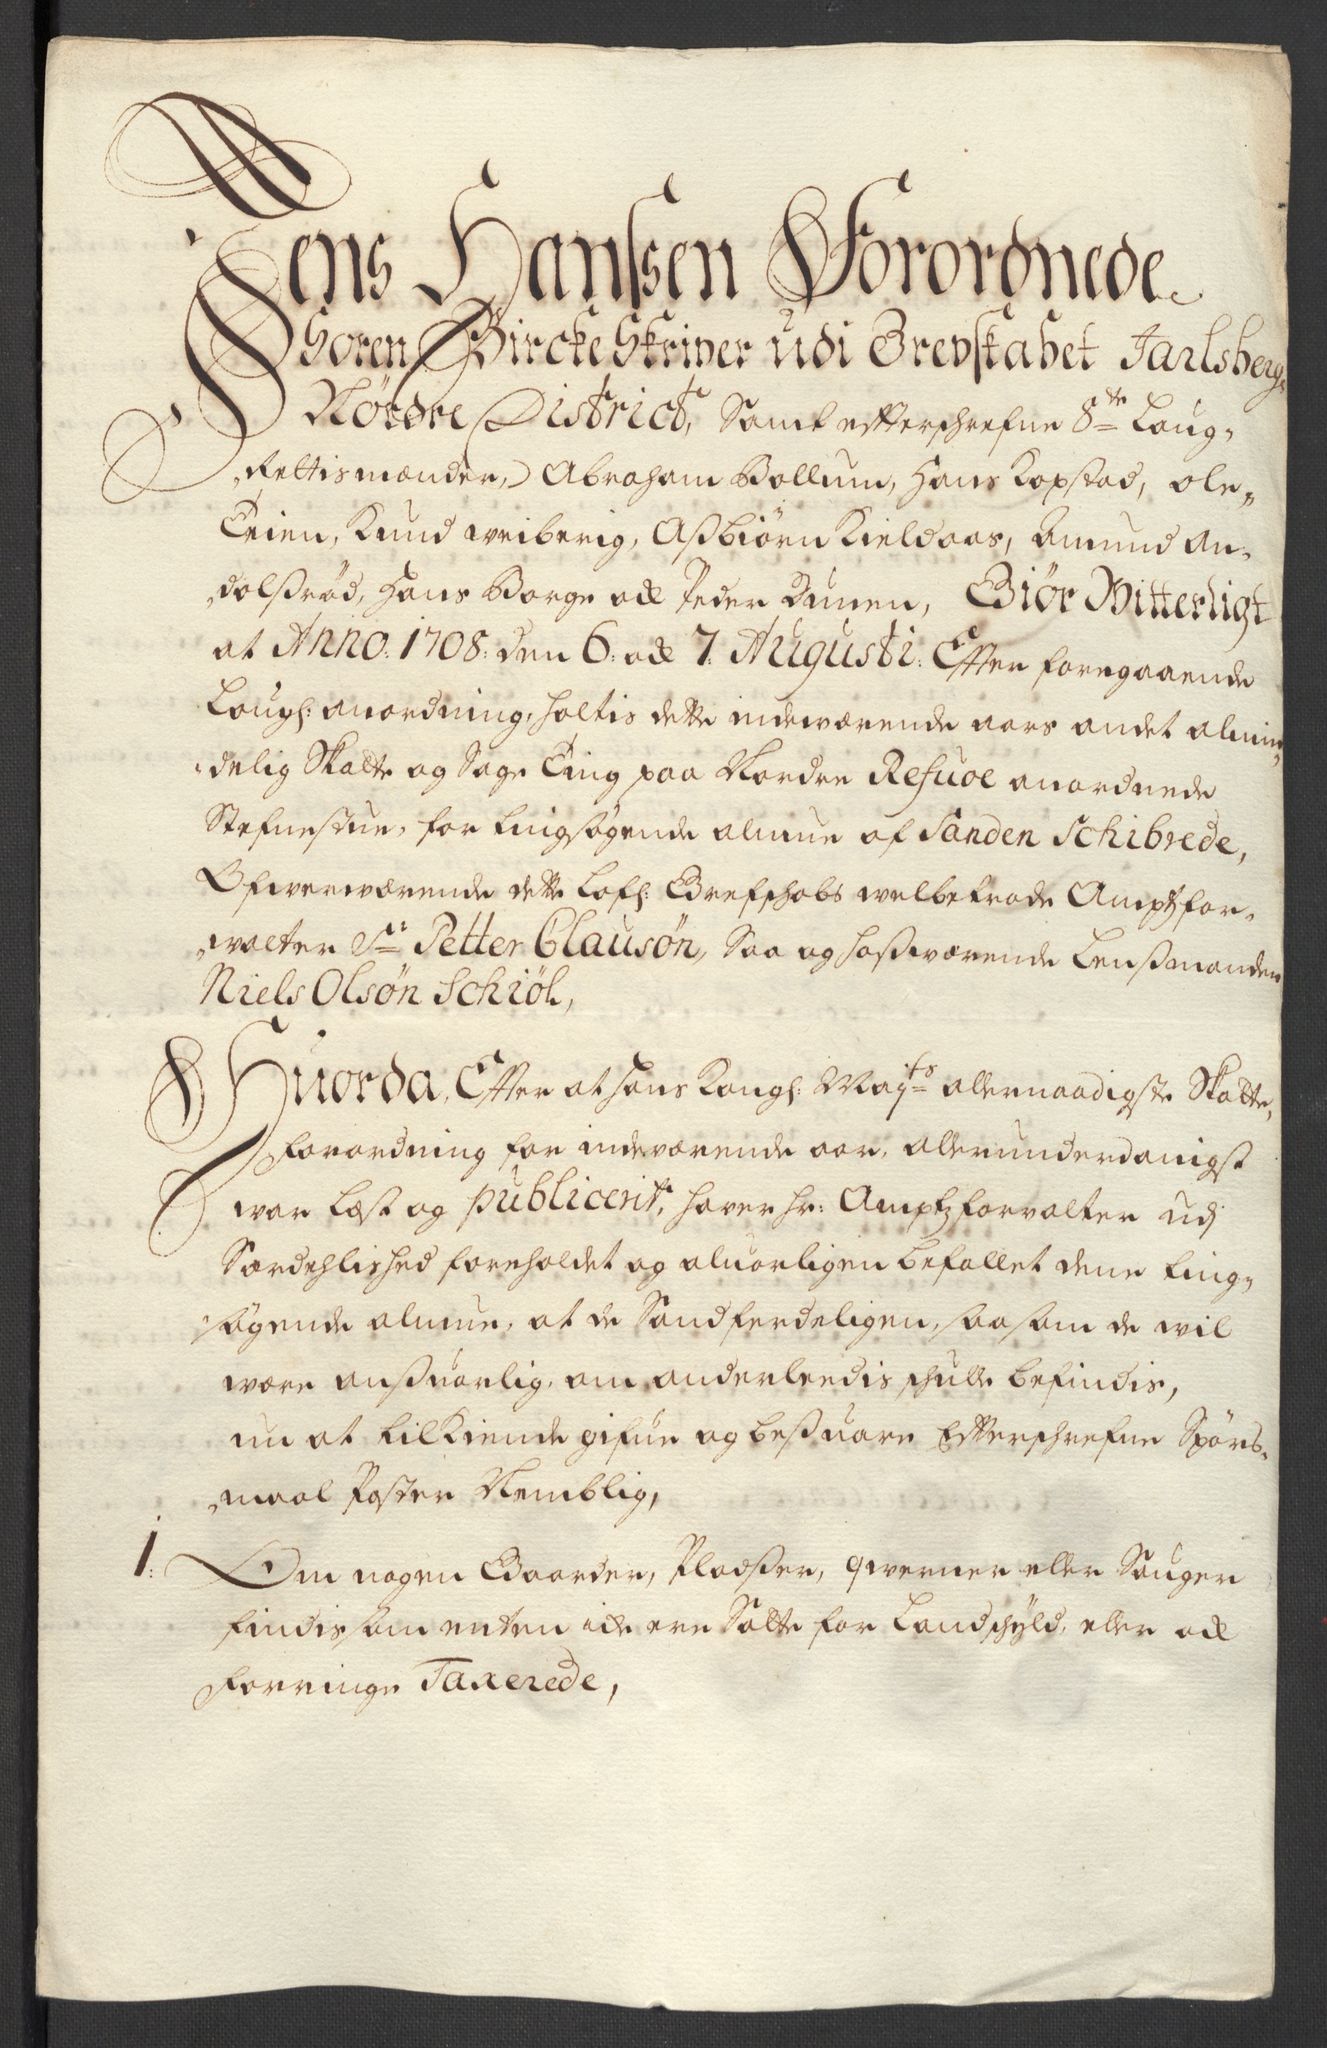 Jens Hanssen Forordnede
Soren Bircke Skriver udi Grevskabet Jarlsbergs
Nördre District, Samt efterschrefne 8te Laug-
Rettismænder, Abraham Bollum, Hans Kopstad, Ole
Teien, Knud Weiberig, Assbiørn Kieldaas, Amund An-
dolssrød, Hans Borge och Peder Dunen, Giör Witterligt
at Anno: 1708: den 6: och 7: Augusti: Effter foregaaende
Laugl: anordning, holtis dette indeværende aars andet almin-
delig Skatte og Sage Ting paa Nordre Refsuoe anordnede
Stefnestue, for tingsøgende almue af Sanden Schibrede,
Ofwerværende dette Lofl: Grefschabs welbetrode Amptsfor-
walter Sr Petter Clausøn, Saa og hossværende Lenssmanden
Niels Olsøn Schiöl,
Huorda, Effter at hans Kongl: Mayts allernaadigste Skatte-
forordning for indeværende aar, allerunderdanigst
war læst og publicerit, hafver hr: Amptzforvalter udj
Særdehlished foreholdet og aluorligen befallet denne ting-
søgende almue, at de Sandferdeligen, saa som de wil
være anssuarlig, om anderleedis schulle befindis,
nu at tilkiende gifue og bessuare Efterschrefne Spørs-
maal Poster Nemblig,
1: Om nogen Gaarder, Pladsser, qwerner eller Sauger
findis som enten iche ere Satte for Landschyld, eller och
forringe Taxerede,